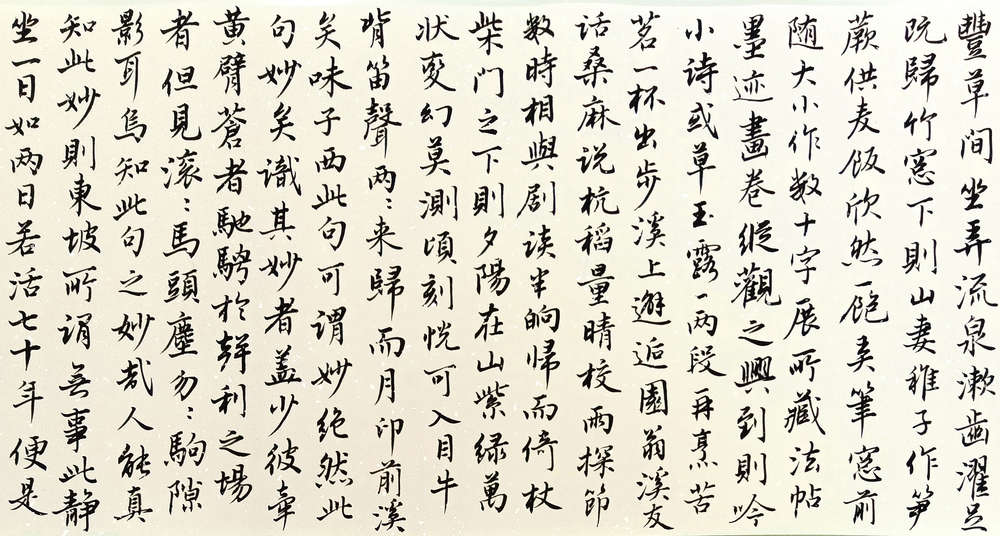 豐草間坐弄流泉漱齒濯足
既歸竹窓下則山妻稚子作笋
蕨供麦飯欣然一飽弄筆窓前
随大小作数十字展所藏法帖
墨迹畫卷縱觀之興到則吟
小诗或草玉露一两段再烹苦
茗一杯出步溪上邂逅園翁溪友
话桑麻说杭稻量晴校雨探節
数時相與剧谈半晌歸而倚杖
柴门之下則夕陽在山紫绿萬
状變幻莫測頃刻恍可入目牛
背笛聲两:来歸而月印前溪
矣味子西此句可謂妙绝然此
句妙矣識其妙者盖少彼牽
黄臂蒼者馳騁於聲利之場
者但見滚:馬頭塵匆:駒隙
影耳烏知此句之妙哉人能真
知此妙則東坡所谓無事此静
坐一日如两日若活七十年便是